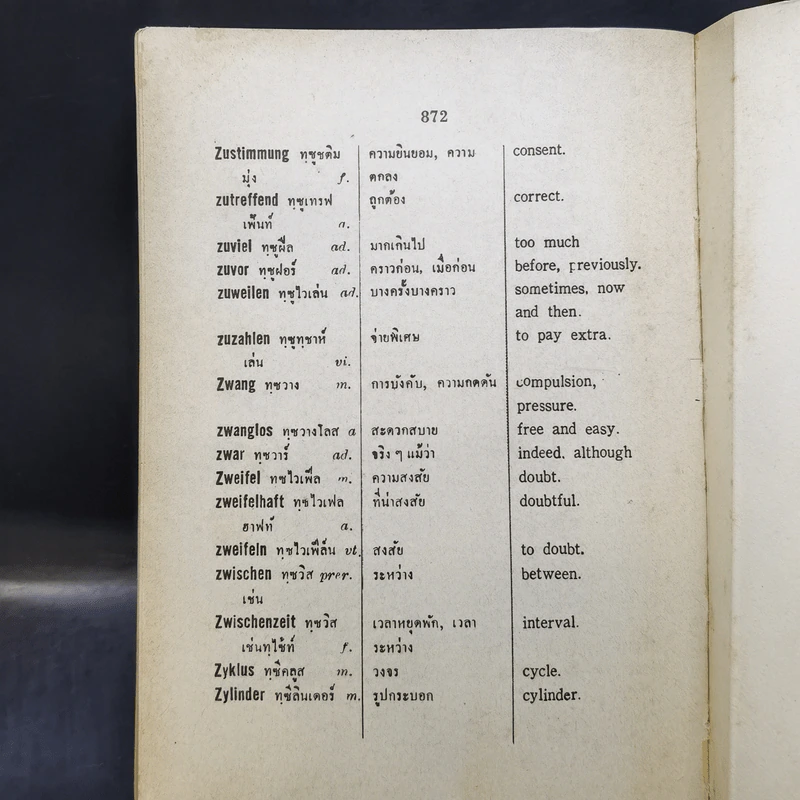 872
Zustimmung ทฺซูชติม ความยินยอม, ความ consent.
มุ่ง f. ตกลง
zutreffend ทฺซูเทรฟ ถูกต้อง correct.
เฟ็นท์ a.
zuviel ทฺซูฟีล ad. มากเกินไป too much
zuvor ทฺซูฝอร์ ad. คราวก่อน, เมื่อก่อน before, previously.
zuweilen ทฺซูไวเล่น ad. บางครั้งบางคราว sometimes, now
and then.
zuzahlen ทฺซูทฺซาห์ จ่ายพิเศษ to pay extra.
เล่น vi.
Zwang ทฺซวาง m. การบังคับ, ความกดดัน compulsion,
pressure.
zwanglos ทฺซวางโลส a สะดวกสบาย free and easy.
zwar ทฺซวาร์ ad. จริง ๆ แม้ว่า indeed, although
Zweifel ทฺซไวเฟ็ล m. ความสงสัย doubt.
zweifelhaft ทฺซไวเฟล ที่น่าสงสัย doubtful.
ฮาฟท์ a.
zweifeln ทฺซไวเฟ็ล์น vt. สงสัย to doubt.
zwischen ทฺซวิส prer. ระหว่าง between.
เช่น
Zwischenzeit ทฺซวิส เวลาหยุดพัก, เวลา interval.
เช่นทฺไซ้ท์ f. ระหว่าง
Zyklus ทฺซีคลูส m. วงจร cycle.
Zylinder ทฺซิลินเดอร์ m. รูปกระบอก cylinder.